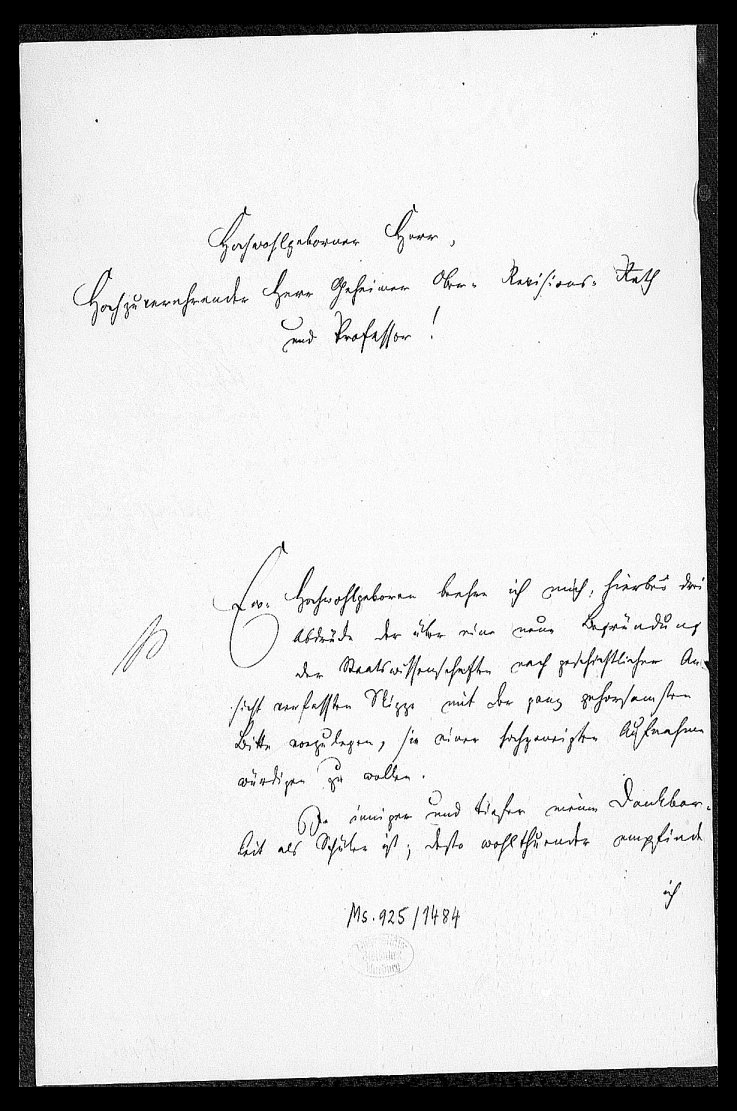 Hochwohlgeborner Herr,
Hochzuverehrender Herr Geheimer Ober- Revisions- Rath
und Professor!
Ew. Hochwohlgeboren beehre ich mich, hierbei drei
Abdrücke der über eine neue Begründung
der Staatswissenschaften nach geschichtlicher An-
sicht verfaßten Skizze mit der ganz gehorsamsten
Bitte vorzulegen, sie einer hochgeneigten Aufnahme
würdigen zu wollen.
Je inniger und tiefer meine Dankbar-
keit als Schüler ist; desto wohlthuender empfinde
ich
Ms. 925/1484
Marburg